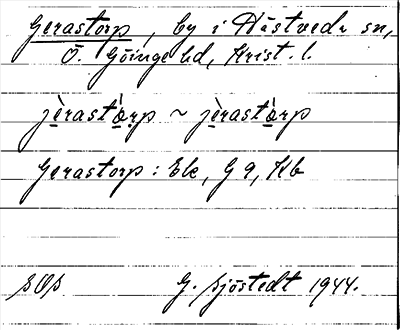 Gerastorp, by i Hästveda sn,
Ö. Göinge hd, Krist. l.
jèrastàrp ~ jèrastàrp
Gerastorp: Ek, G 9, Kb
G. Sjöstedt 1944.